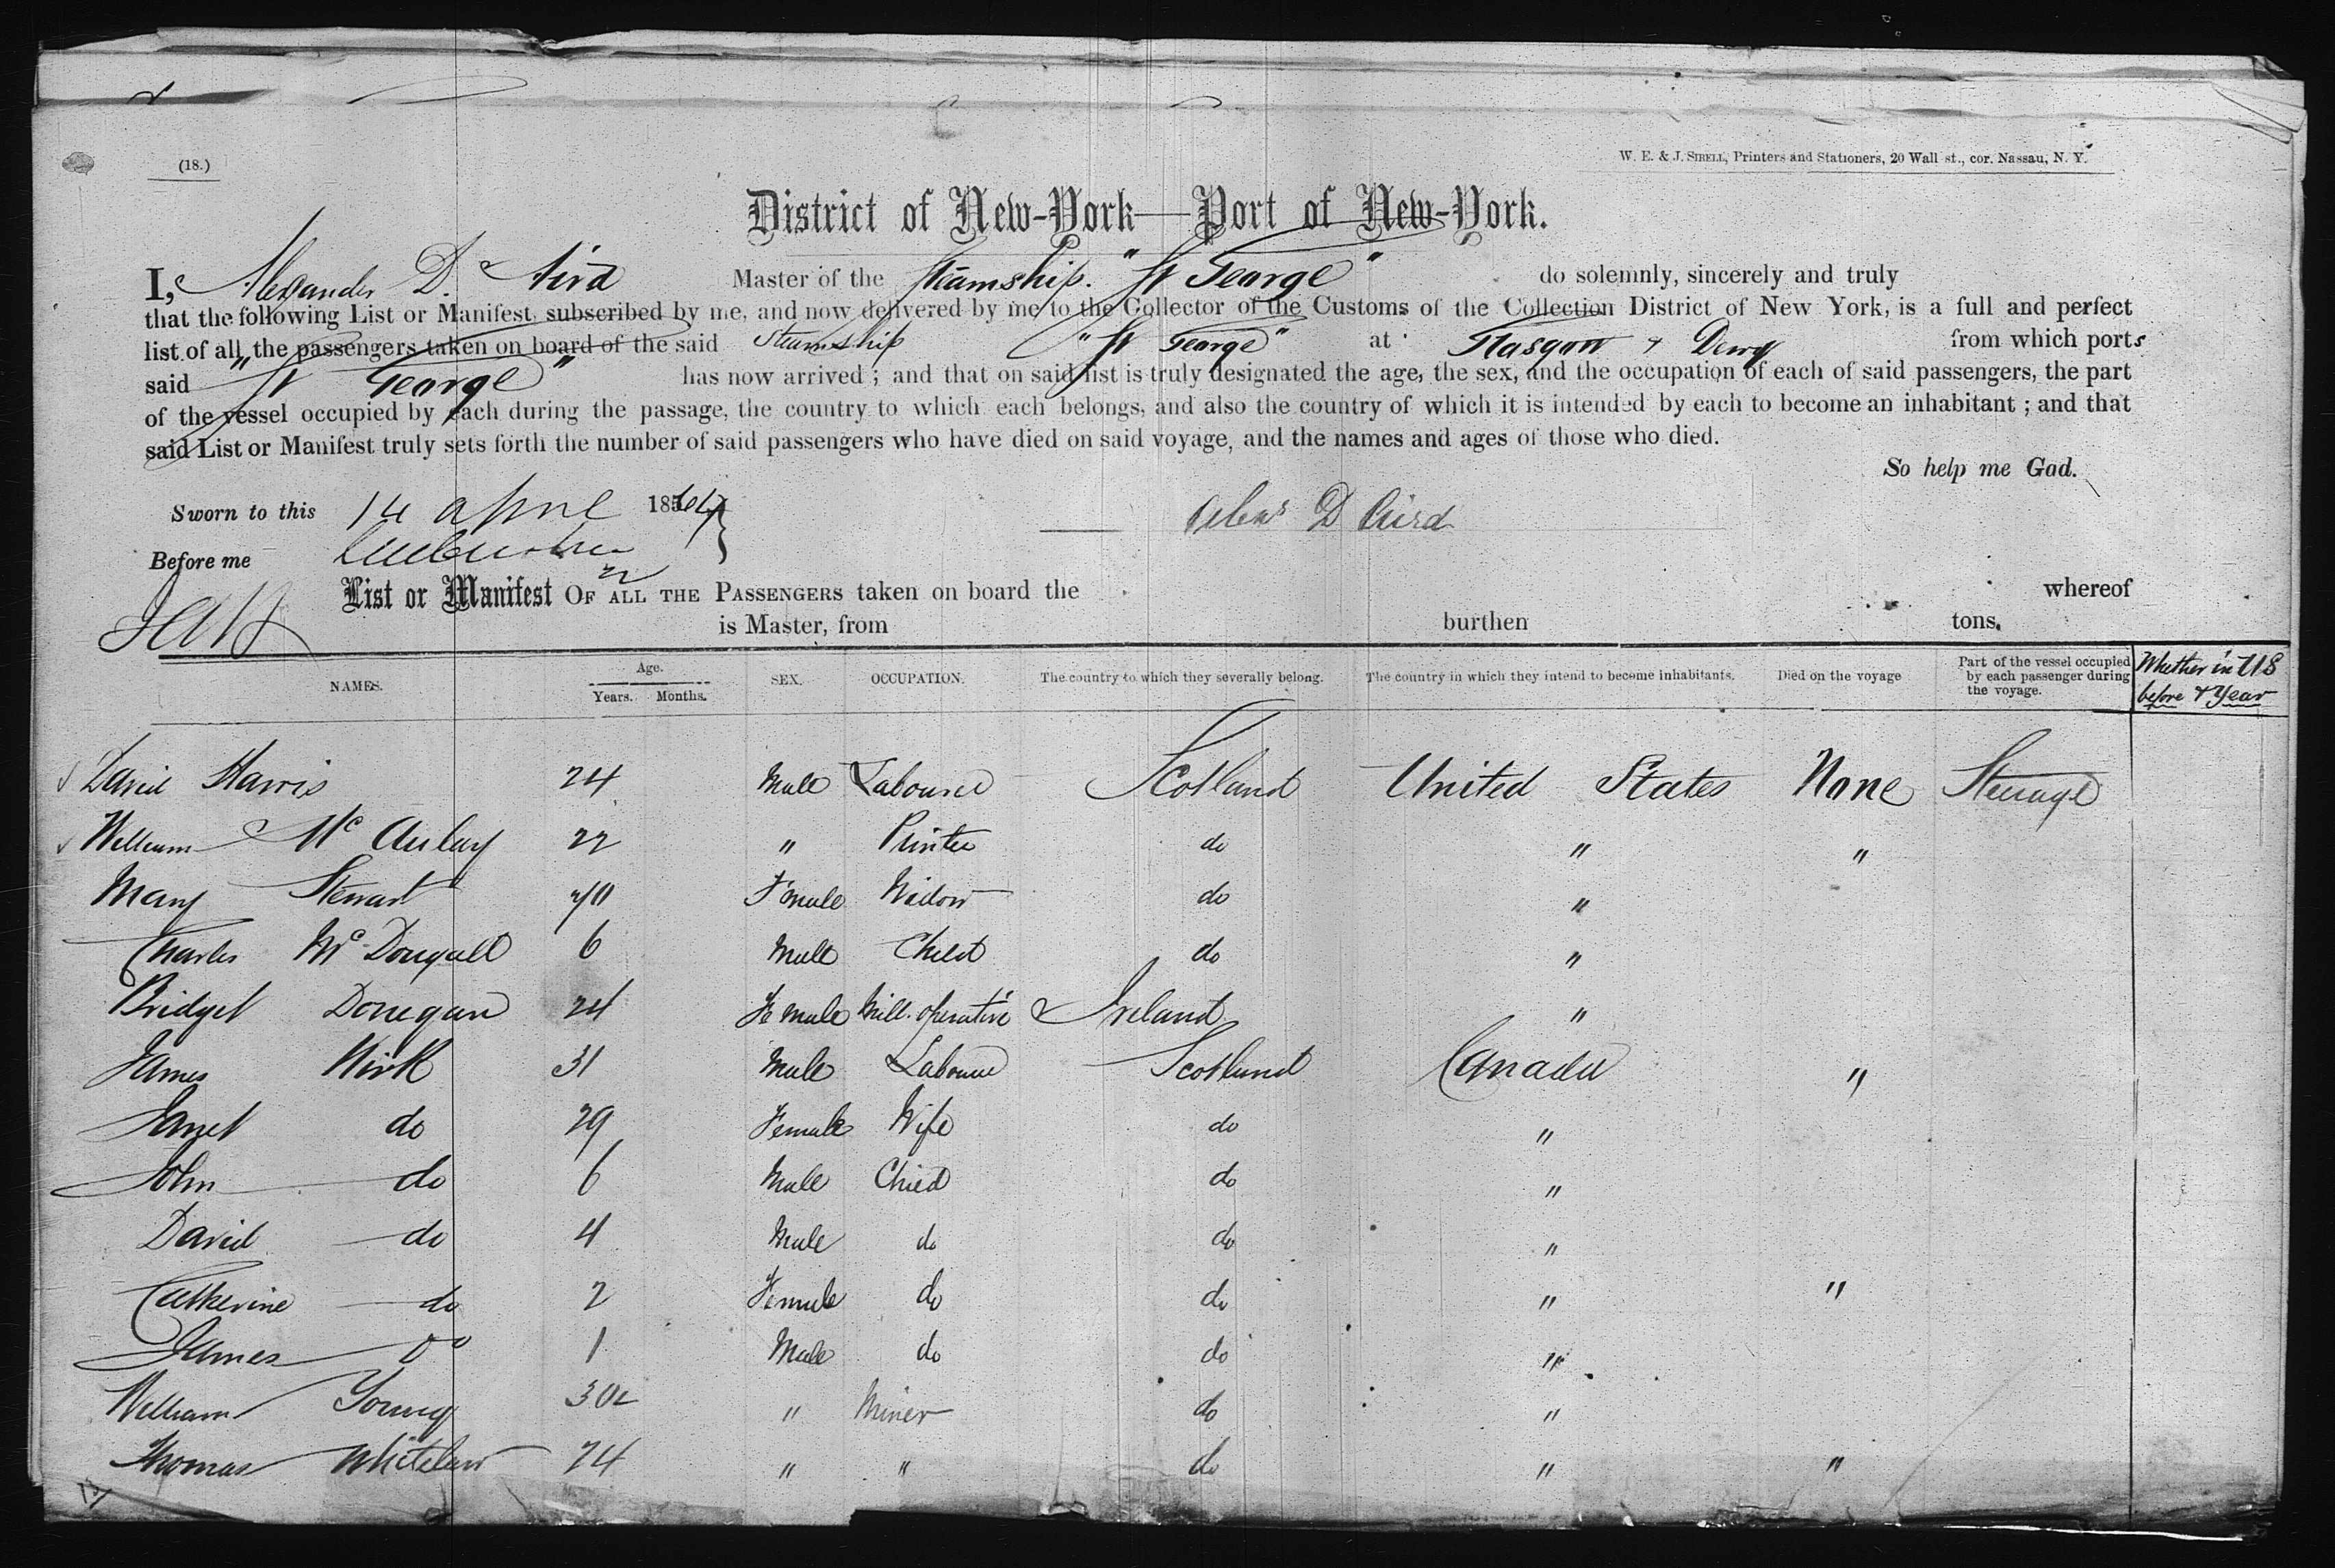 (18.)
W. E. & J. SIBELL, Printers and Stationers, 20 Wall st., cor. Nassau, N. Y.
District of New-York—Port of New-York.
I, Alexander D. Aird Master of the Steamship. "St George" do solemnly, sincerely and truly
that the following List or Manifest, subscribed by me, and now delivered by me to the Collector of the Customs of the Collection District of New York, is a full and perfect
list of all the passengers taken on board of the said Steamship "St George" at Glasgow + Derry from which ports
said "St George" has now arrived; and that on said list is truly designated the age, the sex, and the occupation of each of said passengers, the part
of the vessel occupied by each during the passage, the country to which each belongs, and also the country of which it is intended by each to become an inhabitant; and that
said List or Manifest truly sets forth the number of said passengers who have died on said voyage, and the names and ages of those who died.
So help me God.
Sworn to this 14 April 1864
Alexr D Aird
Before me
List or Manifest OF ALL THE PASSENGERS taken on board the whereof
is Master, from burthen tons.
NAMES. Age. Years. Months. SEX. OCCUPATION. The country to which they severally belong. The country in which they intend to become inhabitants. Died on the voyage Part of the vessel occupied by each passenger during the voyage. Whether in U S before & Year
David Harris 24 Male Labourer Scotland United States None Steerage
William McAulay 22 " Printer do " "
Mary Stewart 70 Female Widow do "
Charles McDougall 6 Male Child do "
Bridget Donegan 24 Female Mill operative Ireland "
James Kirk 31 Male Labourer Scotland Canada "
Janet do 29 Female Wife do "
John do 6 Male Child do "
David do 4 Male do do "
Catherine do 2 Female do do " "
James do 1 Male do do "
William Young 30 " Miner do "
Thomas Whitelaw 24 " " do " "